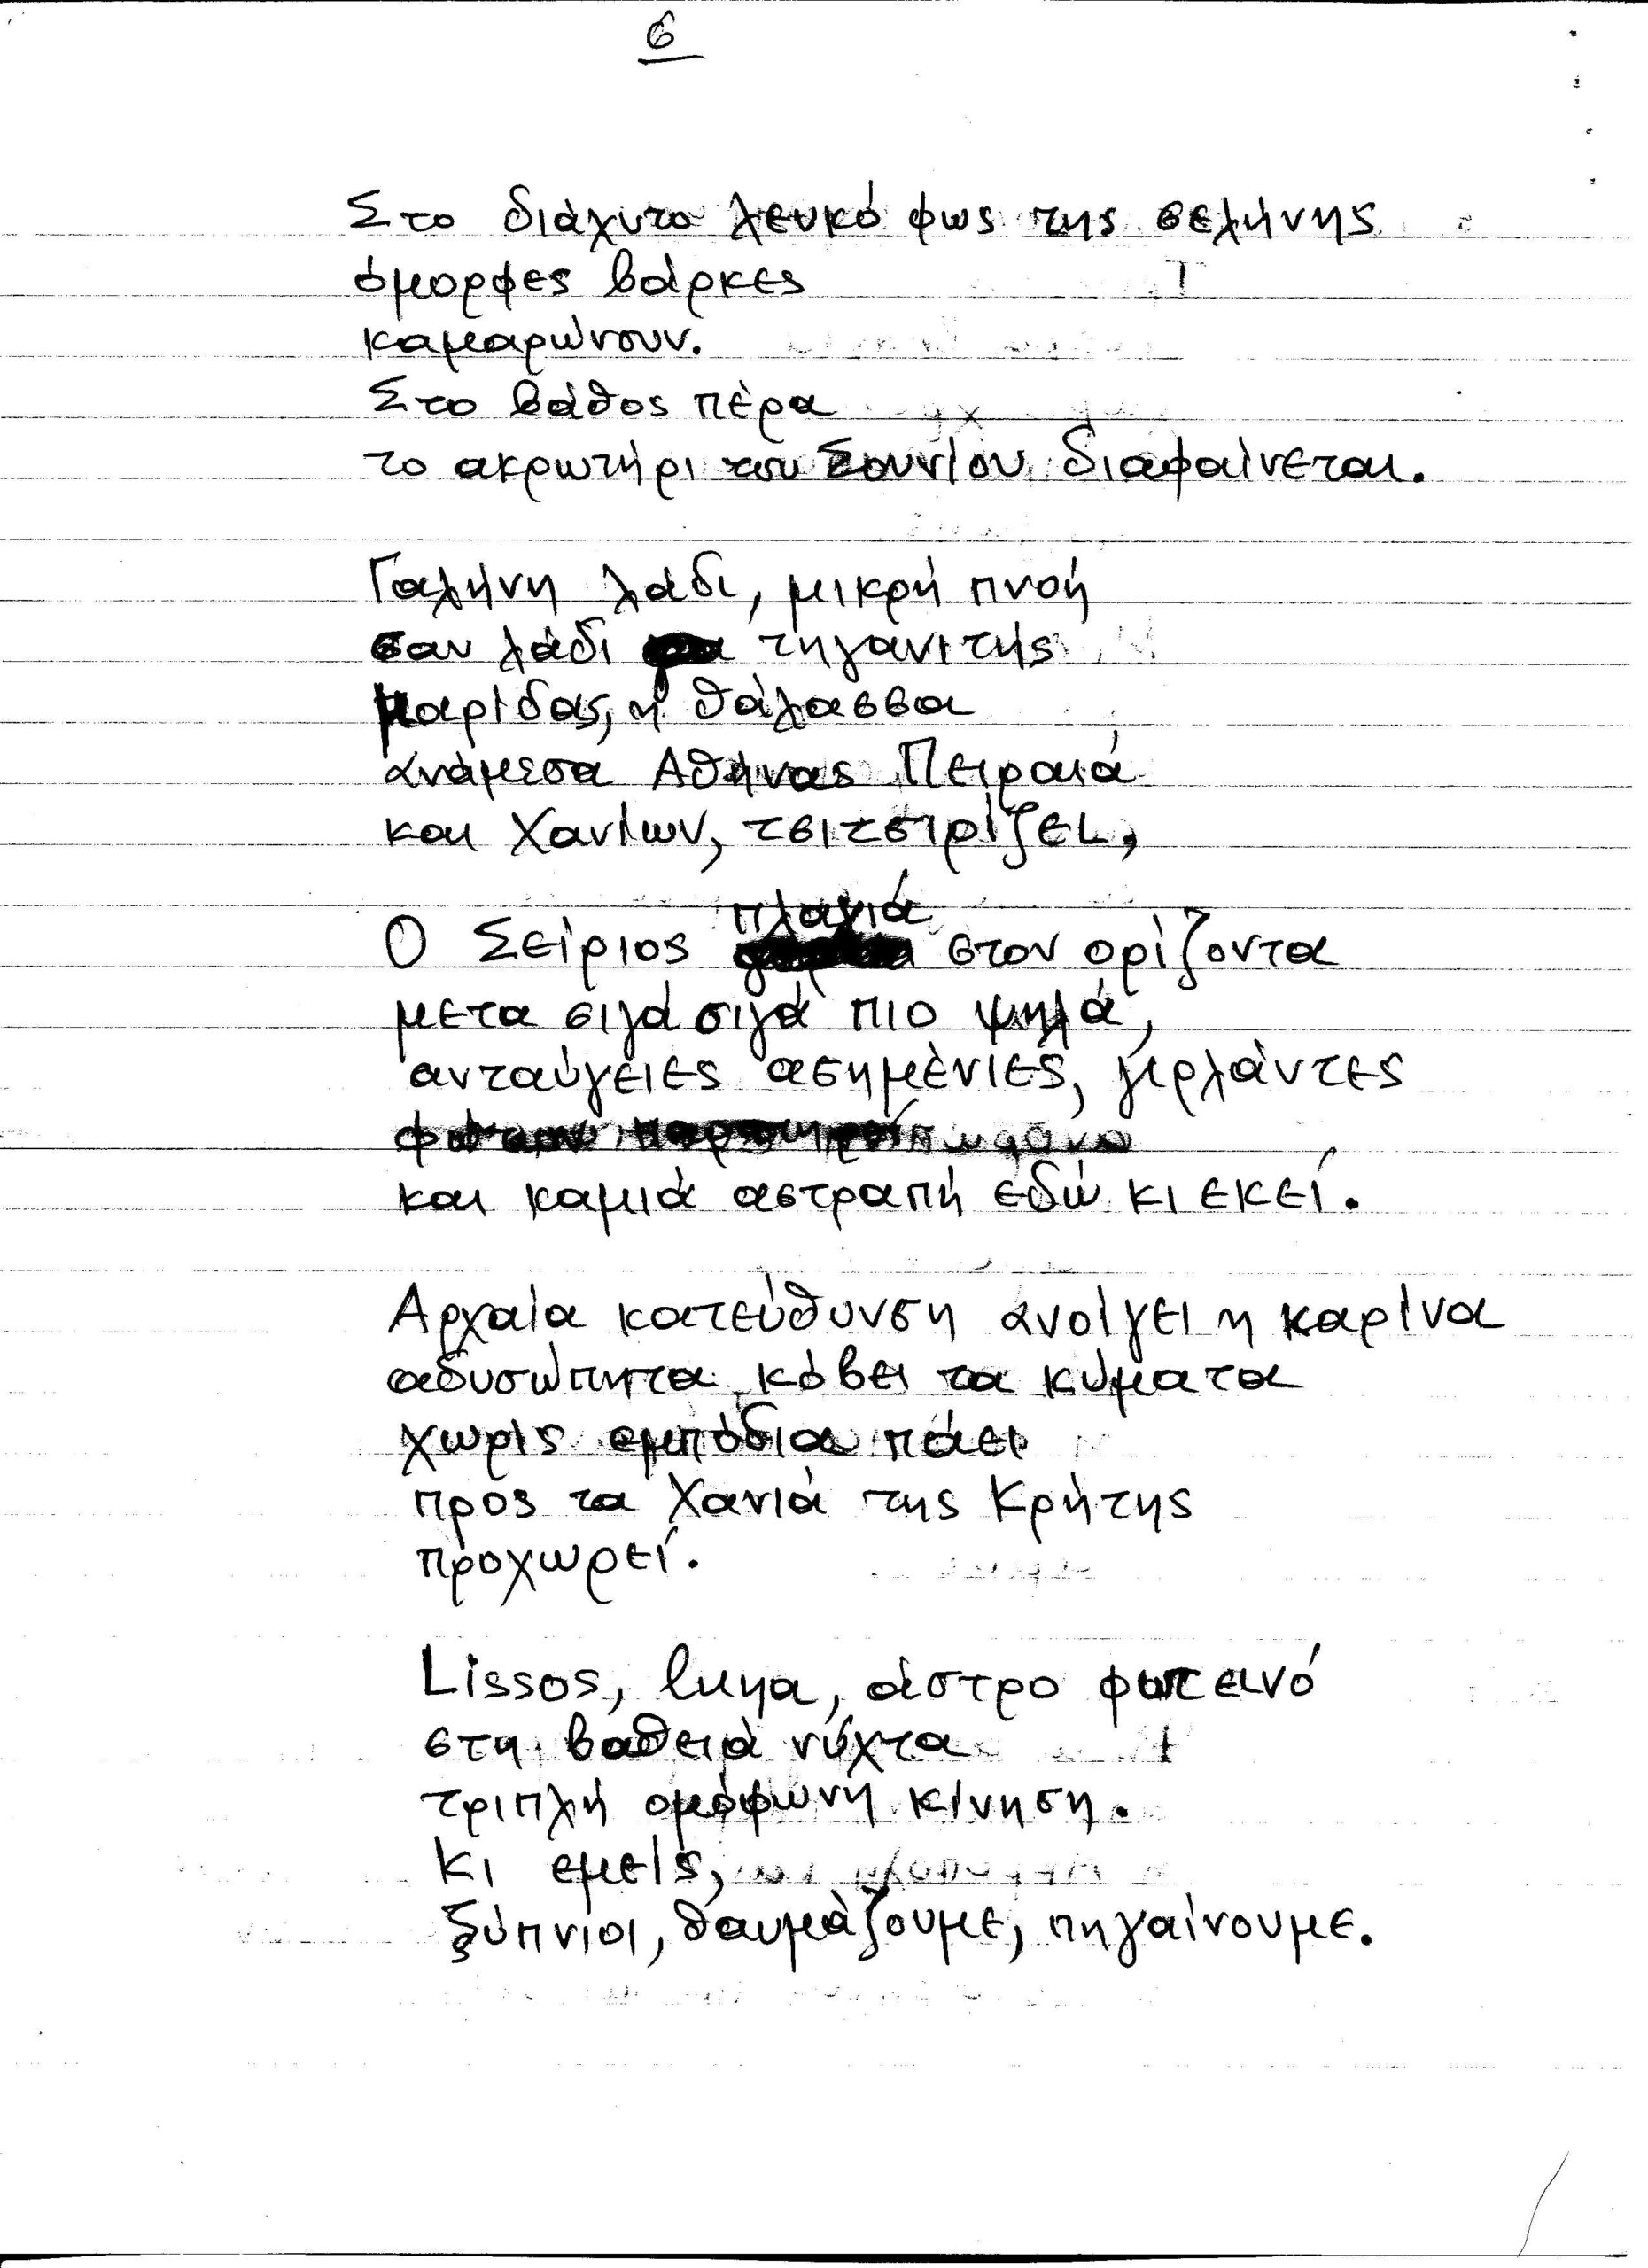 6
Στο διάχυτο λευκό φως της σελήνης
όμορφες βάρκες
καμαρώνουν.
Στο βάθος πέρα
το ακρωτήρι του Σουνίου διαφαίνεται.
Γαλήνη λάδι, μικρή πνοή
σαν λάδι τηγανιτής
μαρίδας, η θάλασσα
ανάμεσα Αθήνας Πειραιά
και Χανίων, τσιτσιρίζει,
πλαγιά
Ο Σείριος στον ορίζοντα
μετα σιγά σιγά πιο ψηλά,
ανταύγειες ασημένιες, γιρλάντες
και καμιά αστραπή εδώ κι εκεί.
Αρχαία κατεύθυνση ανοίγει η καρίνα
αδυσώπητα κόβει τα κύματα
χωρίς εμπόδια πάει
προς τα Χανιά της Κρήτης
προχωρεί.
Lissos, άστρο φωτεινό
στη βαθειά νύχτα
τριπλή ομόφωνη κίνηση.
Κι εμείς,
ξύπνιοι, θαυμάζουμε, πηγαίνουμε.